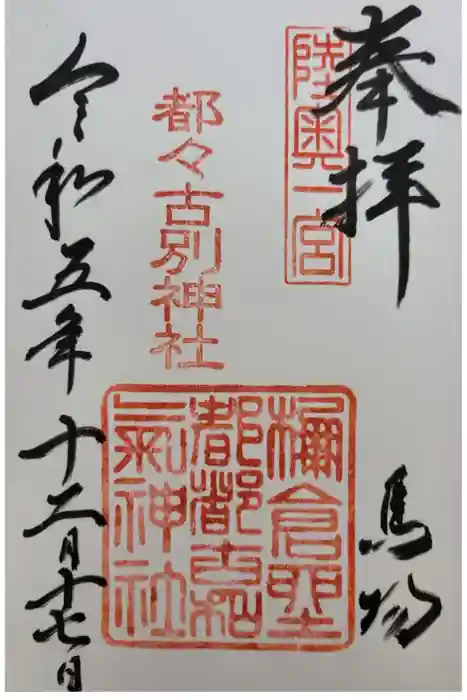 奉拝
陸奥一宮
馬場
都々古別神社
棚倉
都都古和
氣神社
令和五年十二月十七日